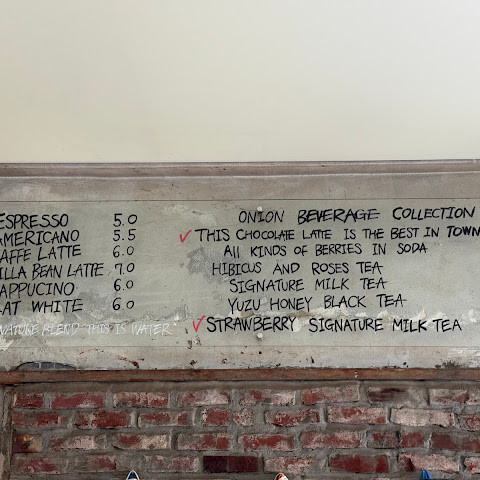 ESPRESSO 5.0
AMERICANO 5.5
AFFE LATTE 6.0
ILLA BEAN LATTE 7.0
APPUCINO 6.0
LAT WHITE 6.0
NATURE BLEND "THIS IS WATER"
ONION BEVERAGE COLLECTION
✓ THIS CHOCOLATE LATTE IS THE BEST IN TOWN
ALL KINDS OF BERRIES IN SODA
HIBICUS AND ROSES TEA
SIGNATURE MILK TEA
YUZU HONEY BLACK TEA
✓ STRAWBERRY SIGNATURE MILK TEA